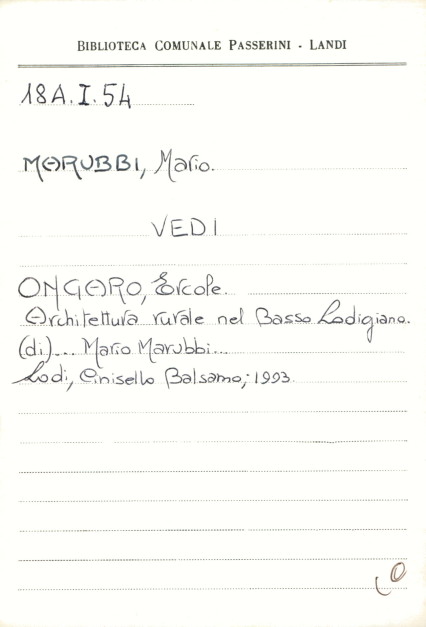 BIBLIOTECA COMUNALE PASSERINI - LANDI
18A.I.54
MARUBBI, Mario.
VEDI
ONGARO, Ercole.
Architettura rurale nel Basso Lodigiano.
(di)... Mario Marubbi...
Lodi, Cinisello Balsamo, 1993.